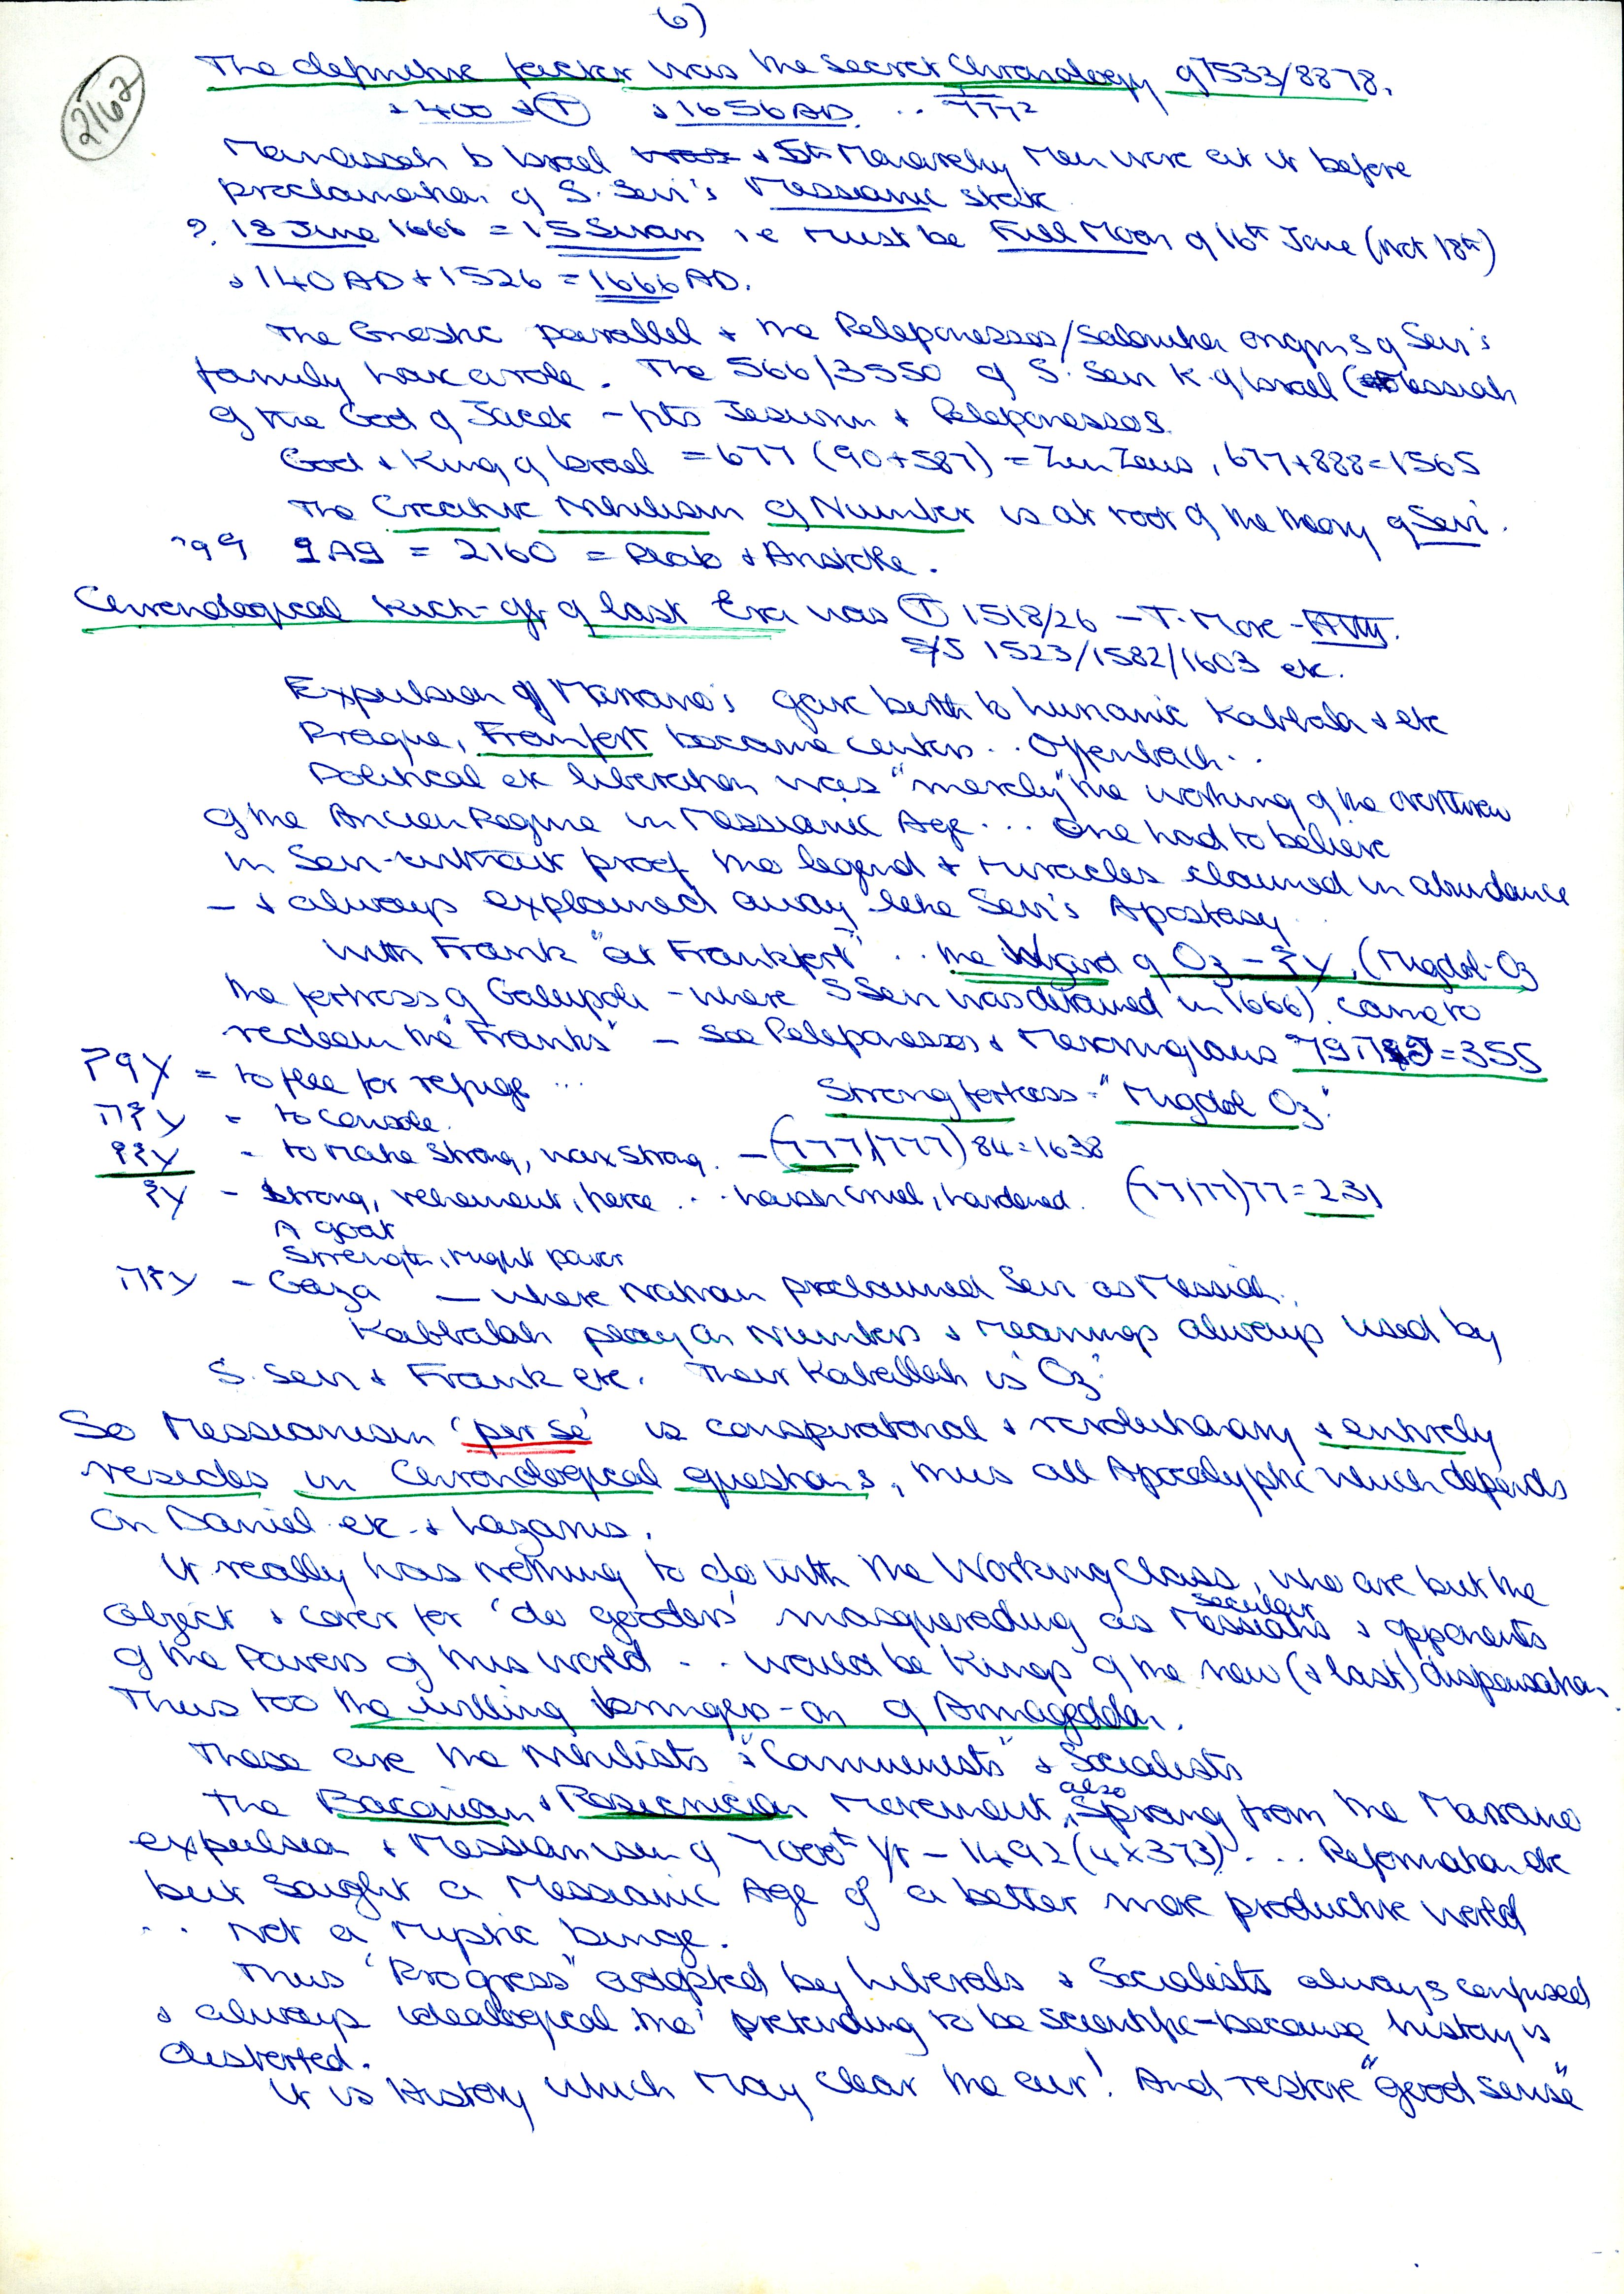 6)
2162
The definitive factor was the secret Chronology of 7533/8878.
+ 400 + (T) + 1656 AD. .. 7772
Menasseh b Israel & 5th Monarchy Men were at it before
proclamation of S. Sevi's Messianic state
?. 18 June 1666 = 15 Sivan i.e must be Full Moon of 16th June (not 18th)
+ 140 AD + 1526 = 1666 AD.
The Gnostic parallel & the Peloponessos/Salonika origins of Sevi's
family have a role. The 566/3550 of S. Sevi K. of Israel (Messiah
of the God of Jacob - into Jesurun & Peloponessos.
God & King of Israel = 677 (90+587) = Zun Zeus, 677+888=1565
The Creative Nihilism of Number is at root of the theory of Sevi.
= 2160 = Plato & Aristotle.
Chronological kick-off of last Era was (T) 1518/26 - T. More -
S/S 1523/1582/1603 etc.
Expulsion of Marrano's gave birth to Lurianic Kabbala & etc
Prague, Franfort became centers .. Offenbach ..
Political etc liberation was "merely" the working of the overthrow
of the Ancien Regime in Messianic Age ... One had to believe
in Sevi - without proof the legend & miracles claimed in abundance
- & always explained away like Sevi's Apostasy
With Frank "at Frankfort" .. the Wizard of Oz - עז, (Migdol-Oz
the fortress of Gallipoli - where S Sevi was detained in 1666) came to
redeem the "Franks" - see Peloponessos & Merovingians = 355
= to flee for refuge ...
Strong fortress = "Migdol Oz."
= to console.
עזז = to make strong, wax strong. - (777/777) 84 = 1638
עז - Strong, vehement, fierce .. harsh cruel, hardened. (77/77) 77 = 231
A goat
Strength, might power
עזה - Gaza - where Nathan proclaimed Sevi as Messiah.
Kabbalah play on Numbers & Meanings always used by
S. Sevi & Frank etc. Their Kaballah is 'Oz'
So Messianism 'per se' is conspiratorial & revolutionary & entirely
resides in Chronological questions, thus all Apocalyptic which depends
on Daniel etc. & Lazarus.
It really has nothing to do with the Working Class, who are but the
object & cover for 'do gooders' masquerading as secular Messiahs & opponents
of the Powers of this world .. would be Kings of the new (& last) dispensation
Thus too the willing bringers-on of Armageddon.
These are the Nihilists & "Communists" & Socialists
The Baconian & Rosicrucian Movement, also Sprang from the Marrano
expulsion & Messianism of 7000th Yr - 1492 (4x373) ... Reformation etc
but sought a Messianic Age of a better more productive world
.. not a mystic binge.
Thus "Progress" adopted by Liberals & Socialists always confused
& always ideological tho' pretending to be scientific - because history is
distorted.
It is History which may clear the air! And restore "good sense"